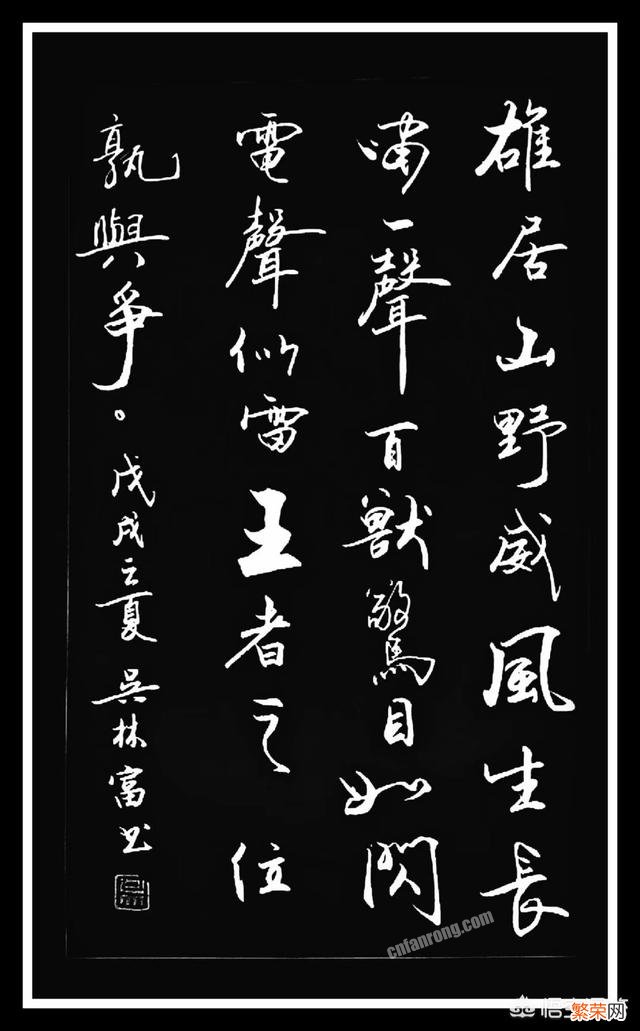 雄居山野威風生長
嘯一聲百獸驚目如閃
電聲似雷王者之位
孰與爭。戊戌之夏 吳林富书
cnfanrong.com
繁荣网